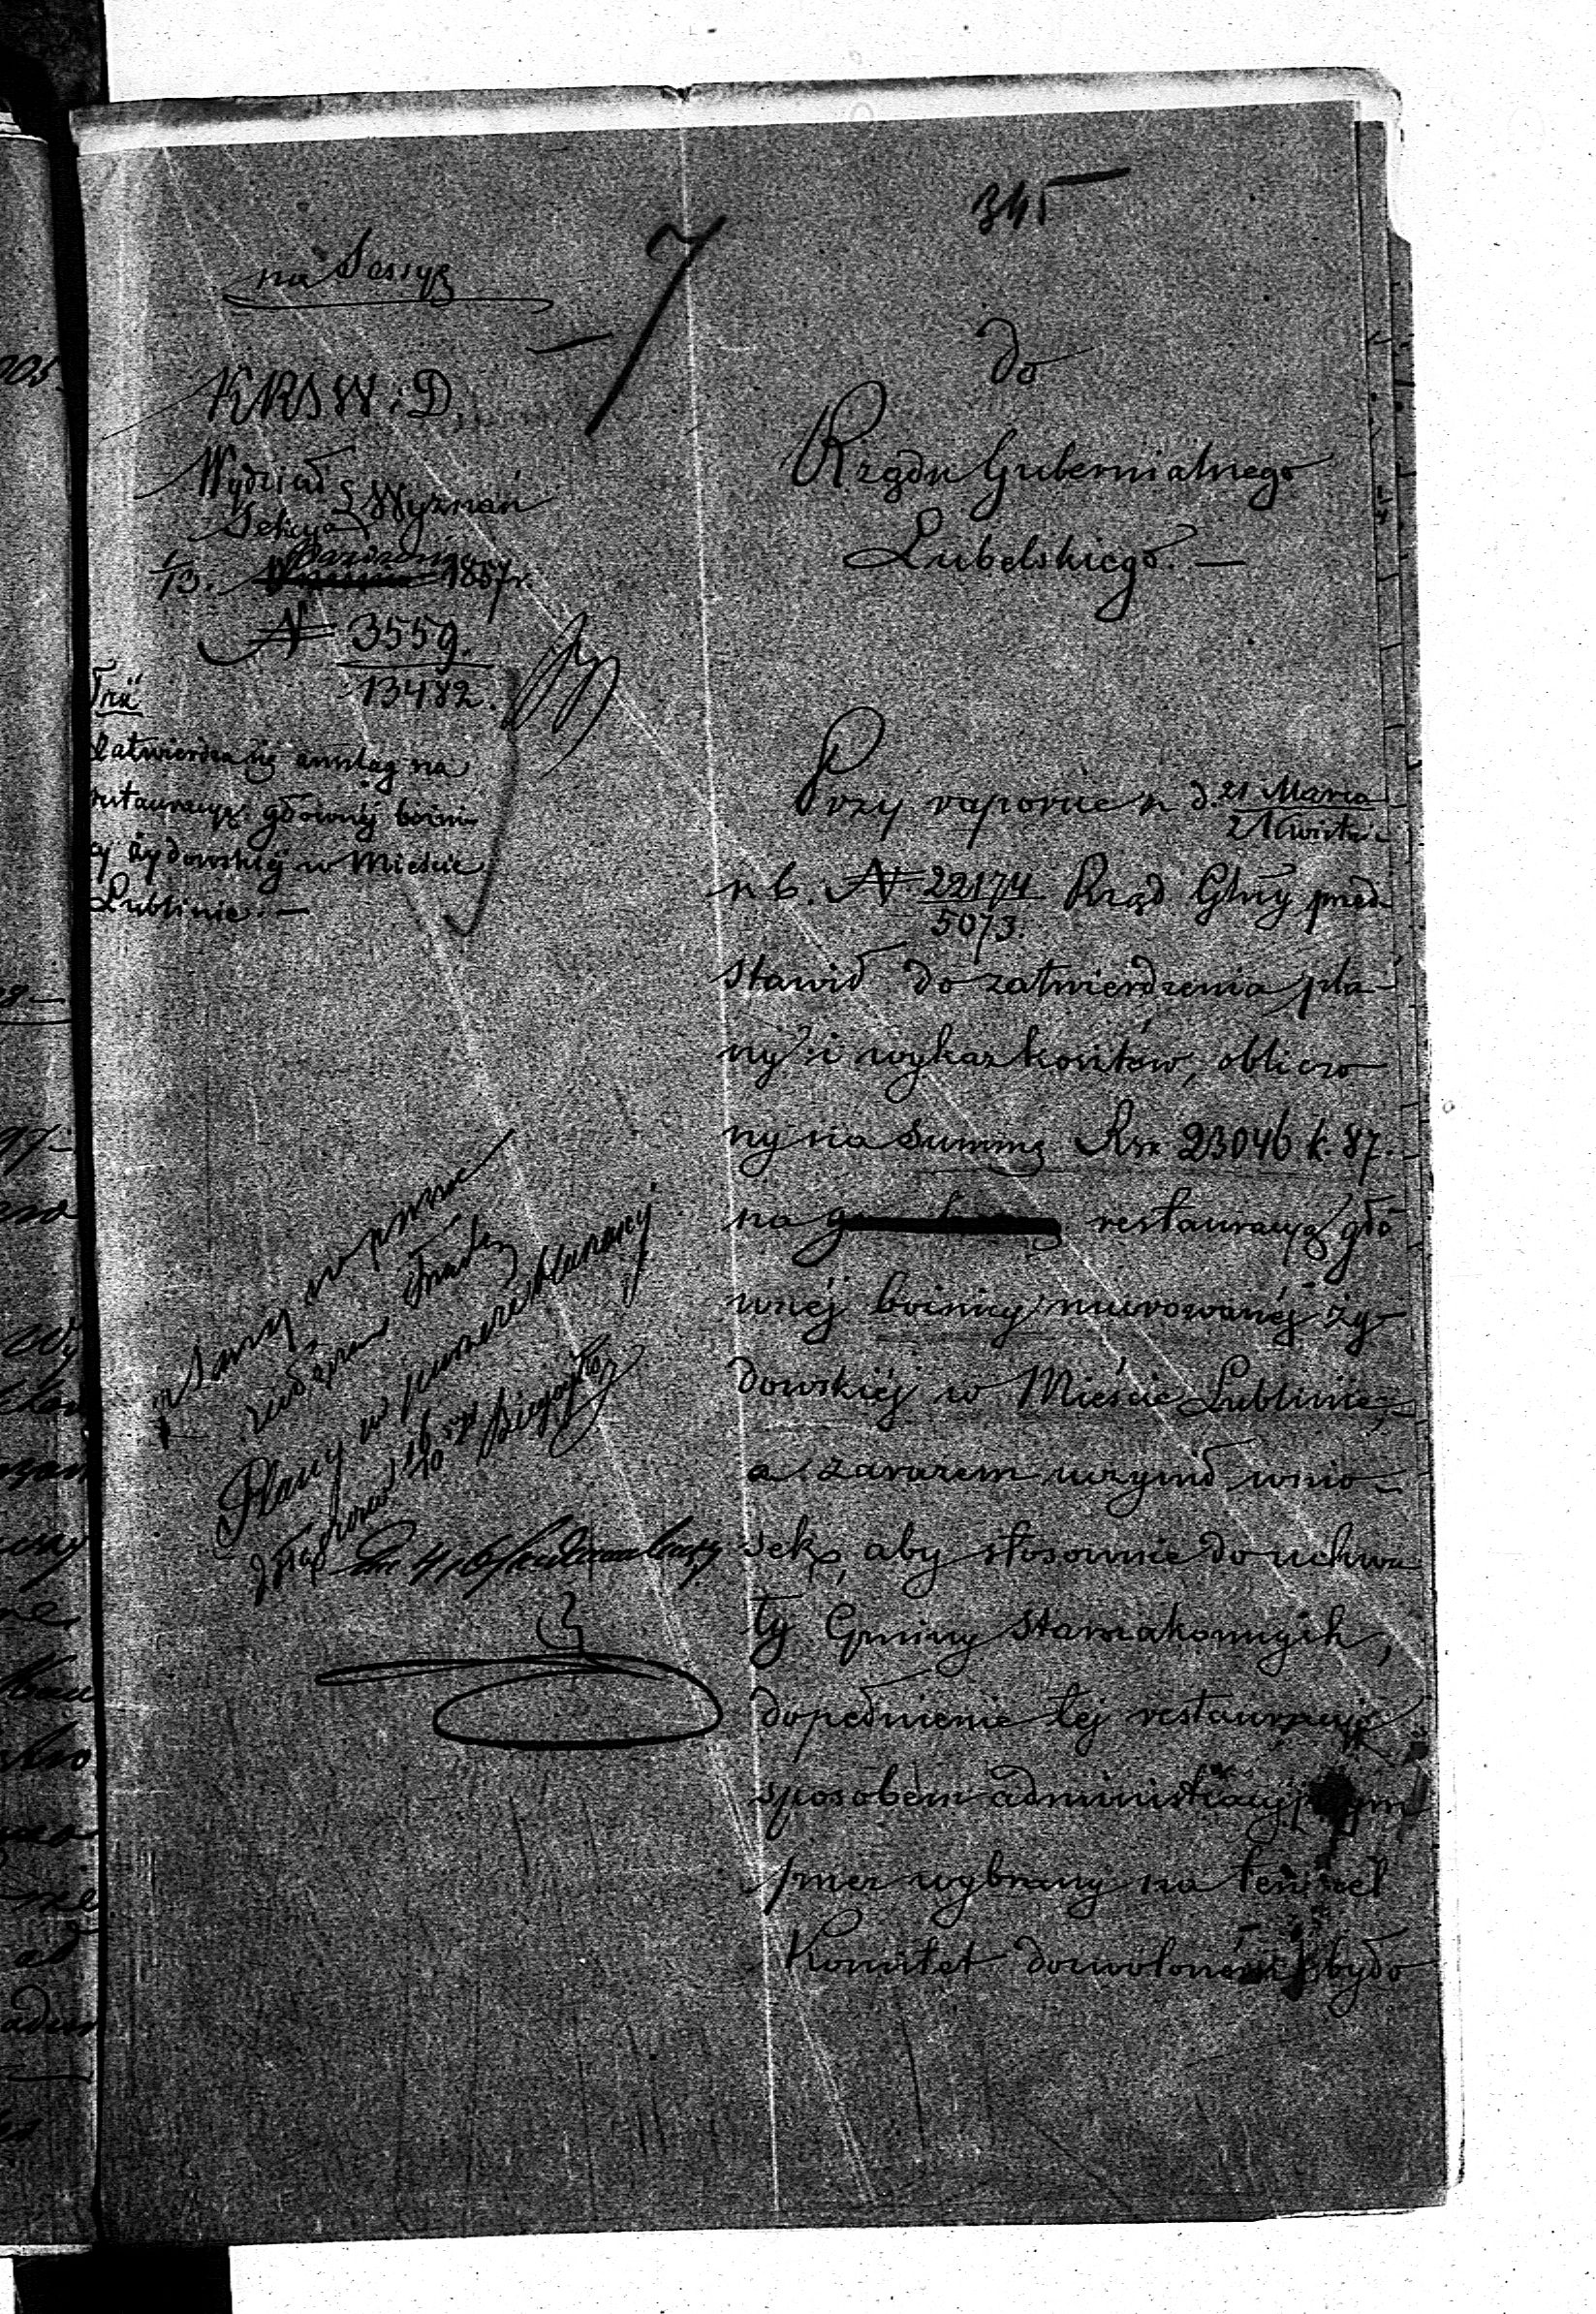 345
na Sessyę
7
KRSW i D.
Wydział
Sekcya Wyznań
1/13. Września 1857 r.
N 3559.
13482.
Treść
Zatwierdza się anszlag na
restauracyę głównej bóżni-
cy żydowskiej w Mieście
Lublinie. —
do
Rządu Gubernialnego
Lubelskiego. —
Przy raporcie z d. 21 Marca
2 Kwietnia
r. b. N 22174 Rząd Glny przed-
5073.
stawił do zatwierdzenia pla-
ny i wykaz kosztów, obliczo-
ny na summę Rsr. 23046 k. 87.
na restauracyę głó-
wnéj bóżnicy murowanéj ży-
dowskiéj w Mieście Lublinie,
a zarazem uczynił wnio-
sek, aby stosownie do uchwa-
ły Gminy Starozakonnych,
dopełnienie téj restauracyi
sposobem administracyjnym
przez wybrany na ten cel
Komitet dozwolonem było
Plany w